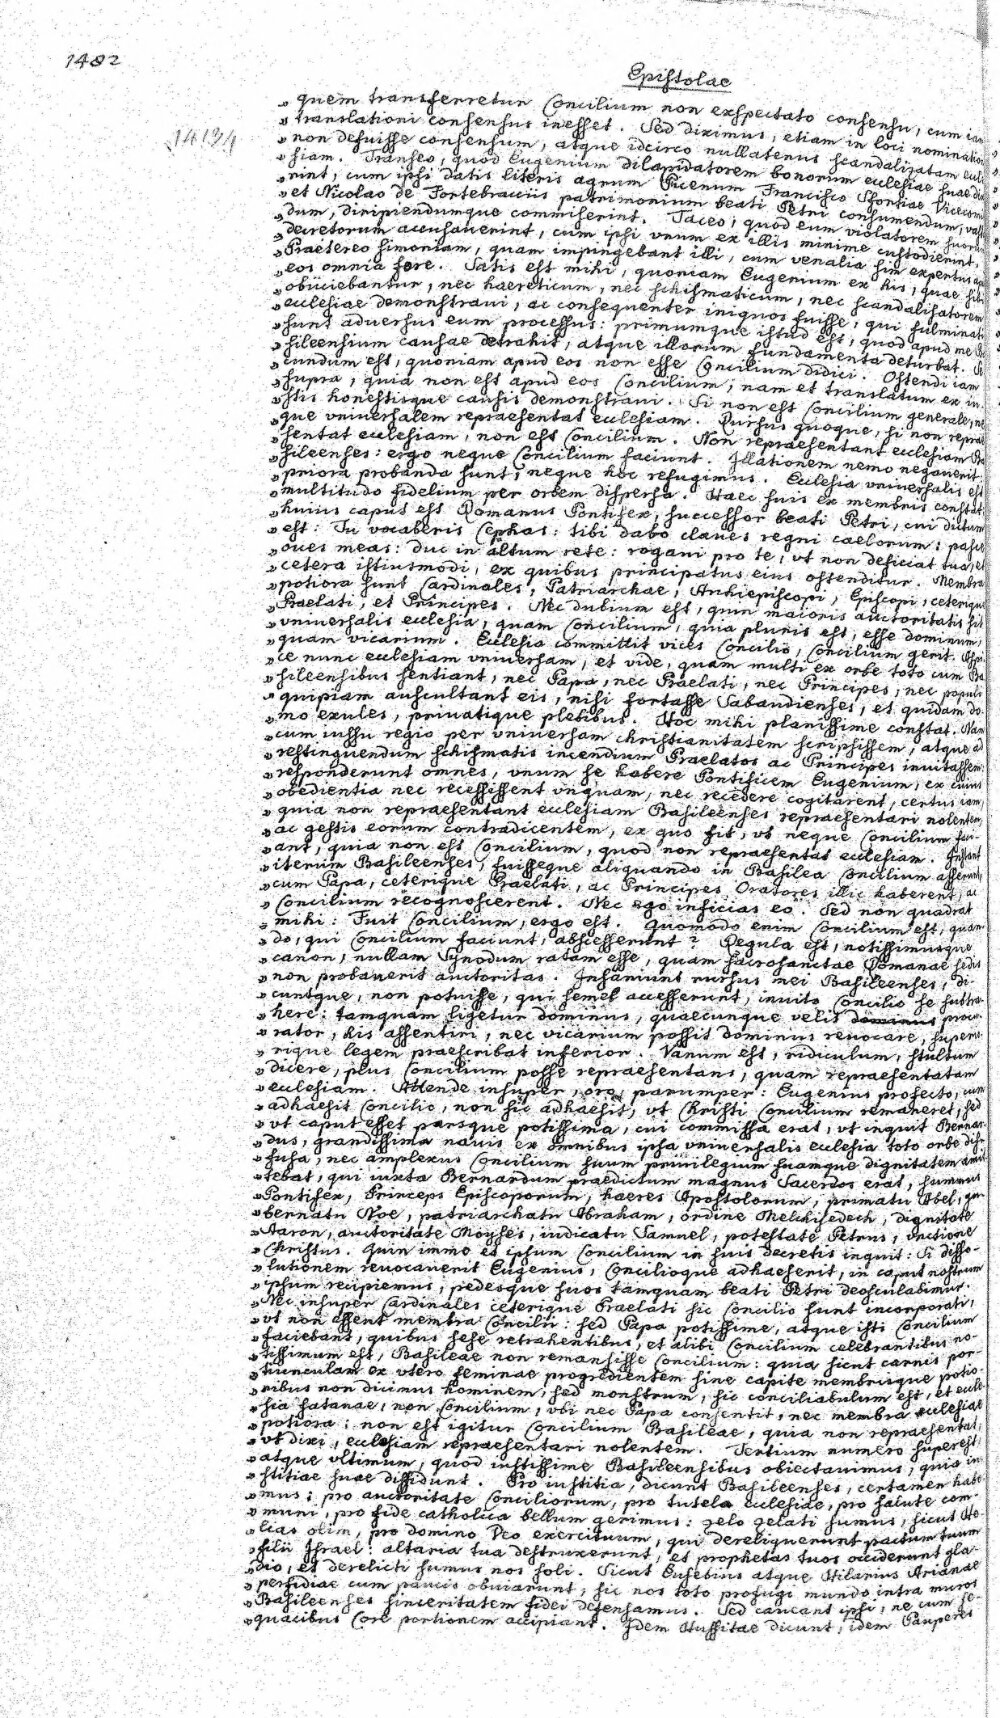 1482
Epistolae
14134
» quem transferretur Concilium non exspectato consensu, cum
» translationi consensus inesset. Sed diximus, etiam in loci nominatione
» non defuisse consensum, atque idcirco nullatenus scandalizatam
» siam. Transeo, quod Eugenium dilapidatorem bonorum ecclesiae suae
» rint, cum ipsi datis literis agrum Picenum Francisco Sfortiae
» et Nicolao de Fortebracciis patrimonium beati Petri consumendum,
» dum, diripiendumque commiserint. Taceo, quod eum violatorem suorum
» decretorum accusauerint, cum ipsi vnum ex illis minime custodierint.
» Praetereo simoniam, quam impingebant illi, cum venalia
» eos omnia fere. Satis est mihi, quoniam Eugenium ex his, quae sibi
» obiiciebantur, nec haereticum, nec schismaticum, nec scandalisatorem
» ecclesiae demonstraui, ac consequenter iniquos fuisse, qui fulminati
» sunt aduersus eum processus: primumque istud est, quod apud me
» sileensium causae detrahit, atque illorum fundamenta deturbat.
» cundum est, quoniam apud eos non esse Concilium didici. Ostendi iam
» supra, quia non est apud eos Concilium; nam et translatum ex
» stis honestisque causis demonstraui. Si non est Concilium generale,
» que vniuersalem repraesentat ecclesiam. Rursus quoque, si non
» sentat ecclesiam, non est Concilium. Non repraesentant ecclesiam
» sileenses: ergo neque Concilium faciunt. Illationem nemo negauerit:
» priora probanda sunt, neque hoc refugimus. Ecclesia vniuersalis est
» multitudo fidelium per orbem dispersa. Haec suis ex membris constat:
» huius caput est Romanus Pontifex, successor beati Petri, cui dictum
» est: Tu vocaberis Cephas: tibi dabo claues regni caelorum: pasce
» oues meas: duc in altum rete: rogaui pro te, vt non deficiat tua, et
» cetera istiusmodi, ex quibus principatus eius ostenditur. Membra
» potiora sunt Cardinales, Patriarchae, Archiepiscopi, Episcopi, ceterique
» Praelati, et Principes. Nec dubium est, quin maioris auctoritatis sit
» vniuersalis ecclesia, quam Concilium, quia pluris est, esse dominum,
» quam vicarium. Ecclesia committit vices Concilio, Concilium gerit.
» ce nunc ecclesiam vniuersam, et vide, quam multi ex orbe toto cum Ba
» sileensibus sentiant, nec Papa, nec Praelati, nec Principes, nec populi
» quipiam auscultant eis, nisi fortasse Sabaudienses, et quidam do-
» mo exules, priuatique plebibus. Hoc mihi planissime constat. Nam
» cum iussu regio per vniuersam christianitatem scripsissem, atque ad
» restinguendum schismatis incendium Praelatos ac Principes inuitassem:
» responderunt omnes, vnum se habere Pontificem Eugenium, ex cuius
» obedientia nec recessissent vnquam, nec recedere cogitarent, certus iam,
» quia non repraesentant ecclesiam Basileenses repraesentari nolentem,
» ac gestis eorum contradicentem, ex quo fit, vt neque Concilium faci-
» ant, quia non est Concilium, quod non repraesentat ecclesiam. Instant
» iterum Basileenses, fuisseque aliquando in Basilea Concilium asserunt,
» cum Papa, ceterique Praelati, ac Principes Oratores illic haberent, ac
» Concilium recognoscerent. Nec ego inficias eo. Sed non quadrat
» mihi: Fuit Concilium, ergo est. Quomodo enim Concilium est, quan-
» do, qui Concilium faciunt, abscesserunt? Regula est, notissimusque
» canon, nullam Synodum ratam esse, quam sacrosanctae Romanae sedis
» non probauerit auctoritas. Insaniunt rursus mei Basileenses, di-
» cuntque, non potuisse, qui semel accesserunt, inuito Concilio se subtra-
» here: tamquam ligetur dominus, quaecunque velit dominus procu-
» rator, his assentiri, nec vicarium possit dominus reuocare, superio-
» rique legem praescribat inferior. Vanum est, ridiculum, stultum
» dicere, plus Concilium posse repraesentans, quam repraesentatam
» ecclesiam. Attende insuper, oro, parumper: Eugenius profecto, cum
» adhaesit Concilio, non sic adhaesit, vt Christi Concilium remaneret, sed
» vt caput esset parsque potissima, cui commissa erat, vt inquit Bernar-
» dus, grandissima nauis ex omnibus ipsa vniuersalis ecclesia toto orbe dif-
» fusa, nec amplexus Concilium suum priuilegium suamque dignitatem amit
» tebat, qui iuxta Bernardum praedictum magnus Sacerdos erat, summus
» Pontifex, Princeps Episcoporum, haeres Apostolorum, primatu Abel, gu-
» bernatu Noe, patriarchatu Abraham, ordine Melchisedech, dignitate
» Aaron, auctoritate Moyses, iudicatu Samuel, potestate Petrus, vnctione
» Christus. Quin immo et ipsum Concilium in suis decretis inquit: Si disso-
» lutionem reuocauerit Eugenius, Concilioque adhaeserit, in caput nostrum
» ipsum recipiemus, pedesque suos tamquam beati Petri deosculabimur.
» Nec insuper Cardinales ceterique Praelati sic Concilio sunt incorporati,
» vt non essent membra Concilii: sed Papa potissime, atque isti Concilium
» faciebant, quibus sese retrahentibus, et alibi Concilium celebrantibus no-
» tissimum est, Basileae non remansisse Concilium: quia sicut carnis por-
» tiunculam ex vtero feminae progredientem sine capite membrisque potio-
» ribus non dicimus hominem, sed monstrum, sic conciliabulum est, et eccle-
» sia satanae, non Concilium, vbi nec Papa consentit, nec membra ecclesiae
» potiora: non est igitur Concilium Basileae, quia non repraesentat,
» vt dixi, ecclesiam repraesentari nolentem. Tertium numero superest,
» atque vltimum, quod iustissime Basileensibus obiectauimus, quia iu-
» stitiae suae diffidunt. Pro iustitia, dicunt Basileenses, certamen habe-
» mus: pro auctoritate Conciliorum, pro tutela ecclesiae, pro salute com-
» muni, pro fide catholica bellum gerimus: zelo zelati sumus, sicut He-
» lias olim, pro domino Deo exercituum, qui dereliquerunt pactum tuum
» filii Israel: altaria tua destruxerunt, et prophetas tuos occiderunt gla-
» dio, et derelicti sumus nos soli. Sicut Eusebius atque Hilarius Arianae
» perfidiae cum paucis obuiarunt, sic nos toto profugi mundo intra muros
» Basileenses sinceritatem fidei defensamus. Sed caueant ipsi, ne cum se-
» quacibus Core portionem accipiant. Idem Hussitae dicunt, idem Pauperes